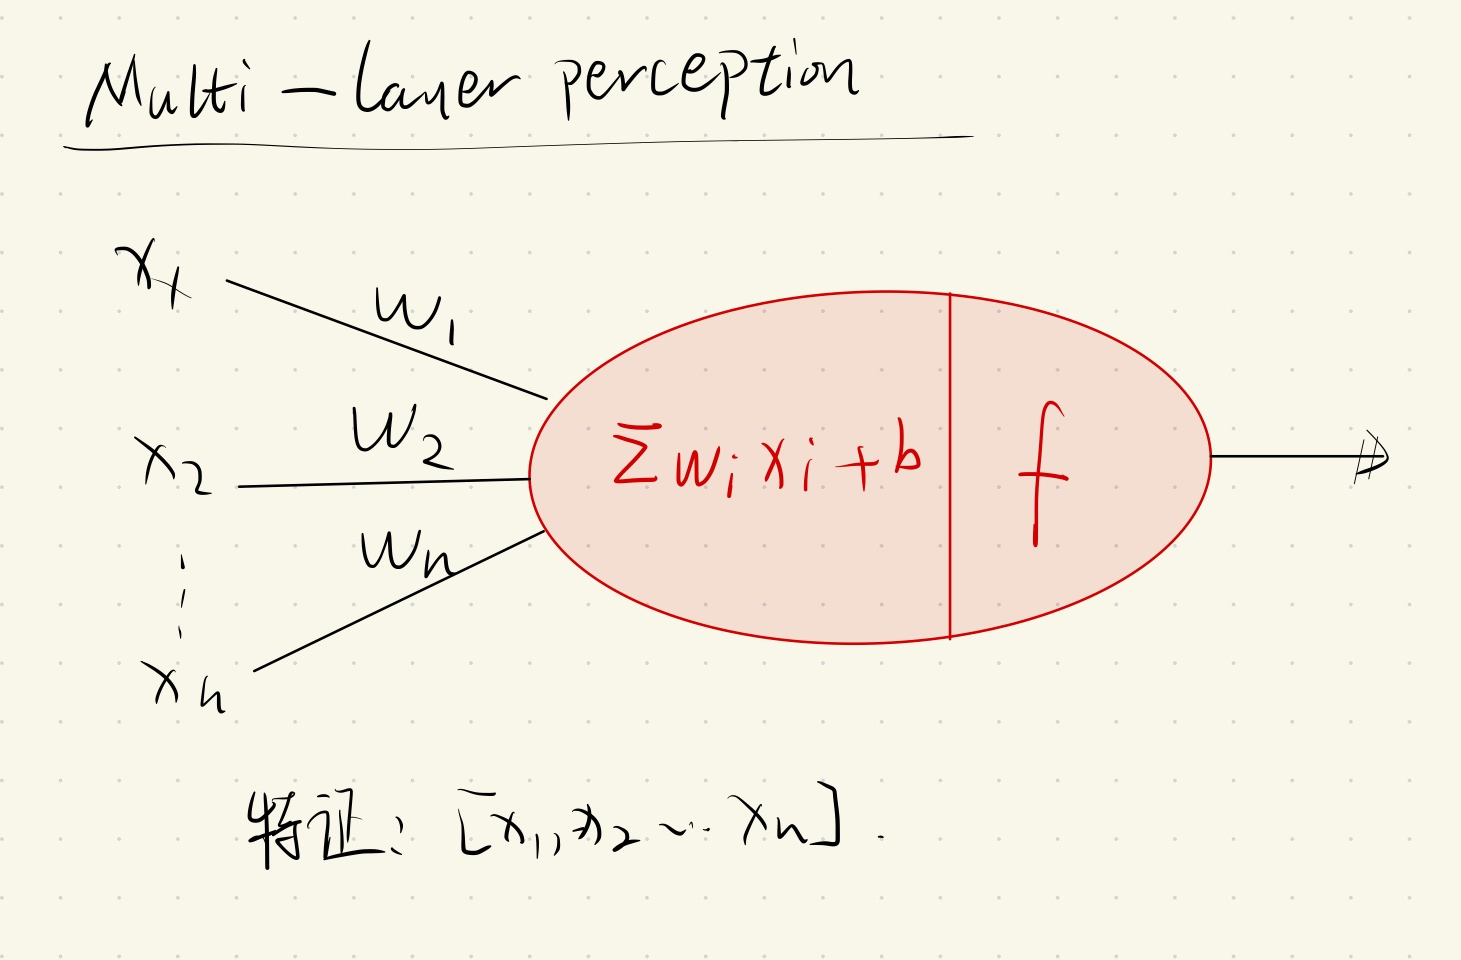 Multi-layer perception
x₁
w₁
w₂
x₂
wₙ
Σwᵢxᵢ+b
f
xₙ
特证: [x₁,x₂ ... xₙ].